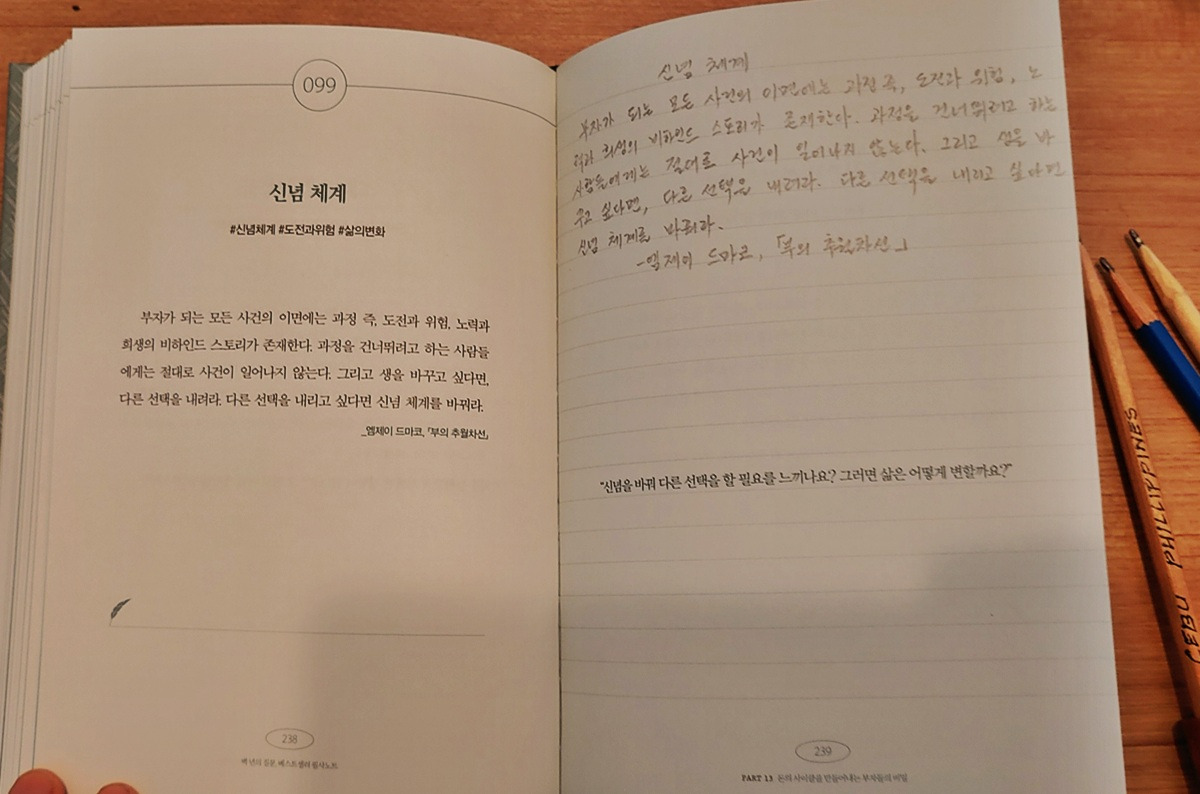 099
신념 체계
#신념체계 #도전과위험 #삶의변화
부자가 되는 모든 사건의 이면에는 과정 즉, 도전과 위험, 노력과
희생의 비하인드 스토리가 존재한다. 과정을 건너뛰려고 하는 사람들
에게는 절대로 사건이 일어나지 않는다. 그리고 생을 바꾸고 싶다면,
다른 선택을 내려라. 다른 선택을 내리고 싶다면 신념 체계를 바꿔라.
_엠제이 드마코, 「부의 추월차선」
238
백 년의 질문, 베스트셀러 필사노트
신념 체계
부자가 되는 모든 사건의 이면에는 과정 즉, 도전과 위험, 노
력과 희생의 비하인드 스토리가 존재한다. 과정을 건너뛰려고 하는
사람들에게는 절대로 사건이 일어나지 않는다. 그리고 생을 바
꾸고 싶다면, 다른 선택을 내려라. 다른 선택을 내리고 싶다면
신념 체계를 바꿔라.
-엠제이 드마코, 「부의 추월차선」
"신념을 바꿔 다른 선택을 할 필요를 느끼나요? 그러면 삶은 어떻게 변할까요?"
239
PART 13 돈의 사이클을 만들어내는 부자들의 비밀
CEBU PHILIPPINES